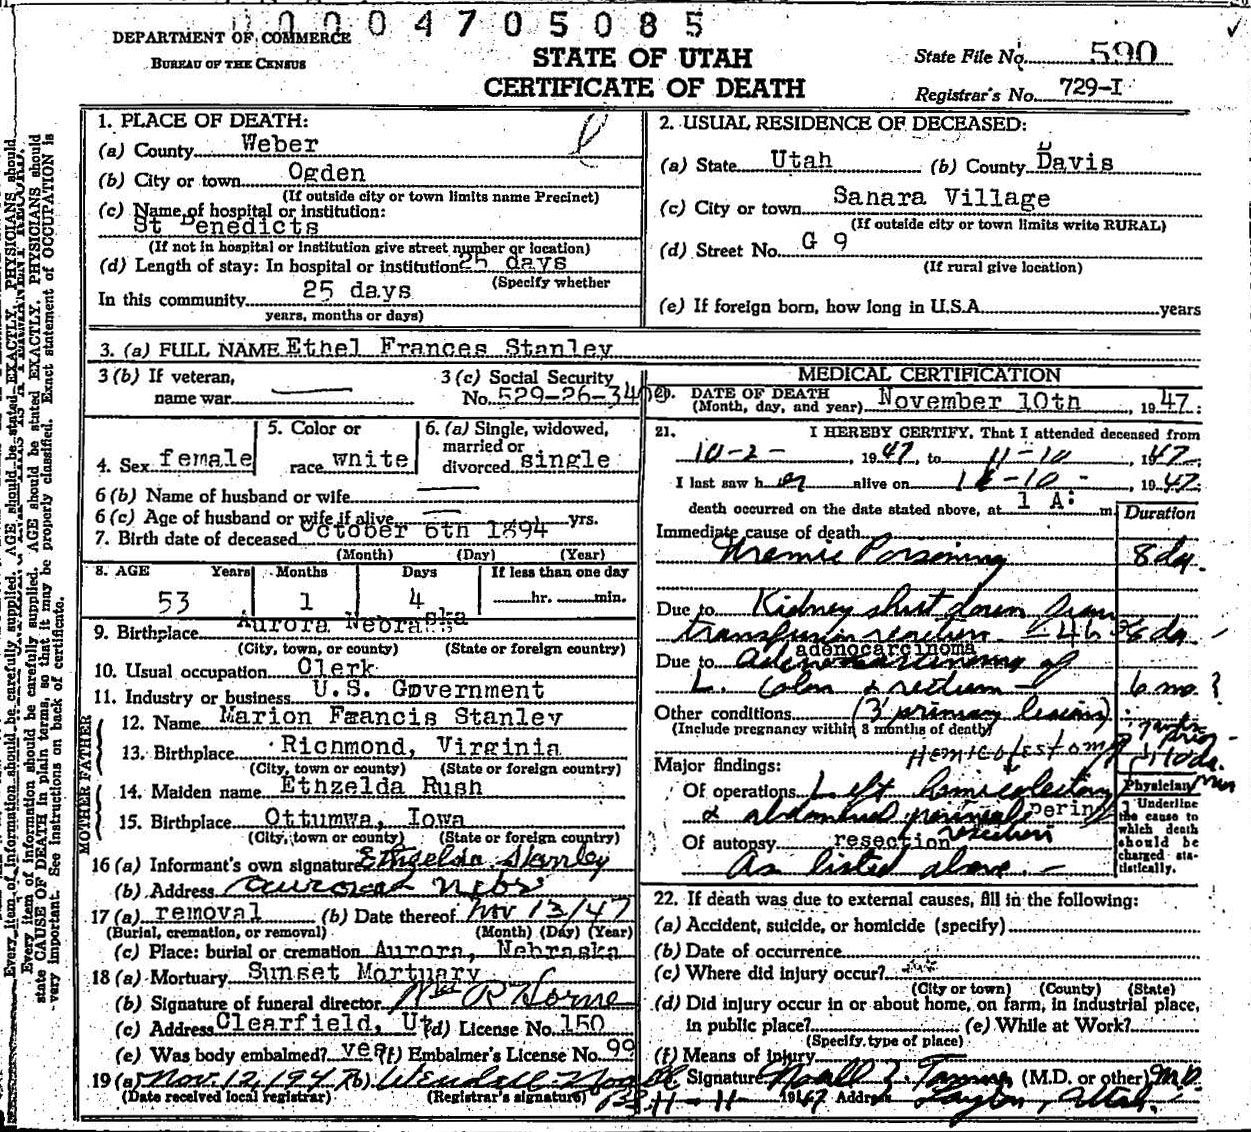 0004705085
DEPARTMENT OF COMMERCE
BUREAU OF THE CENSUS
STATE OF UTAH
CERTIFICATE OF DEATH
State File No. 590
Registrar's No. 729-I
Every item of information should be carefully supplied. AGE should be stated EXACTLY. PHYSICIANS should
state CAUSE OF DEATH in plain terms, so that it may be properly classified. Exact statement of OCCUPATION is
very important. See instructions on back of certificate.
1. PLACE OF DEATH:
(a) County Weber
(b) City or town Ogden
(If outside city or town limits name Precinct)
(c) Name of hospital or institution:
St Benedicts
(If not in hospital or institution give street number or location)
(d) Length of stay: In hospital or institution 25 days
(Specify whether
In this community 25 days
years, months or days)
2. USUAL RESIDENCE OF DECEASED:
(a) State Utah (b) County Davis
(c) City or town Sanara Village
(If outside city or town limits write RURAL)
(d) Street No. G 9
(If rural give location)
(e) If foreign born, how long in U.S.A. years
3. (a) FULL NAME Ethel Frances Stanley
3 (b) If veteran,
name war
3 (c) Social Security
No. 529-26-3402
4. Sex female
5. Color or
race white
6. (a) Single, widowed,
married or
divorced single
6 (b) Name of husband or wife
6 (c) Age of husband or wife if alive yrs.
7. Birth date of deceased October 6th 1894
(Month) (Day) (Year)
8. AGE Years Months Days If less than one day
53 1 4 hr. min.
9. Birthplace Aurora Nebraska
(City, town, or county) (State or foreign country)
10. Usual occupation Clerk
11. Industry or business U.S. Government
MOTHER FATHER
12. Name Marion Francis Stanley
13. Birthplace Richmond, Virginia
(City, town or county) (State or foreign country)
14. Maiden name Ethzelda Rush
15. Birthplace Ottumwa, Iowa
(City, town or county) (State or foreign country)
16 (a) Informant's own signature Ethzelda Stanley
(b) Address Aurora Nebr
17 (a) removal (b) Date thereof Nov 13/47
(Burial, cremation, or removal) (Month) (Day) (Year)
(c) Place: burial or cremation Aurora, Nebraska
18 (a) Mortuary Sunset Mortuary
(b) Signature of funeral director R Horne
(c) Address Clearfield, Ut (d) License No. 150
(e) Was body embalmed? yes (f) Embalmer's License No. 99
19 (a) Nov. 12, 1947 (b) Wendell
(Date received local registrar) (Registrar's signature)
MEDICAL CERTIFICATION
20. DATE OF DEATH
(Month, day, and year) November 10th, 1947
21. I HEREBY CERTIFY, That I attended deceased from
10-2-, 1947, to 11-10, 1947
I last saw her alive on 11-10-, 1947
death occurred on the date stated above, at 1 A: m.
Duration
Immediate cause of death
Uremic Poisoning 8 da.
Due to Kidney shut down from
transfusion reaction
adenocarcinoma
Due to Adenocarcinoma of
L. colon & rectum 6 mo?
Other conditions (3 primary lesions)
(Include pregnancy within 3 months of death)
Hemicolectomy
Major findings:
Of operations Left hemicolectomy
& abdominal perineal
resection
Of autopsy resection
As listed above.
Physician
Underline
the cause to
which death
should be
charged sta-
tistically.
22. If death was due to external causes, fill in the following:
(a) Accident, suicide, or homicide (specify)
(b) Date of occurrence
(c) Where did injury occur?
(City or town) (County) (State)
(d) Did injury occur in or about home, on farm, in industrial place,
in public place? (e) While at Work?
(Specify type of place)
(f) Means of injury
Signature Noall Z. Tanner (M.D. or other) M.D.
11-11-1947 Address Layton, Utah.